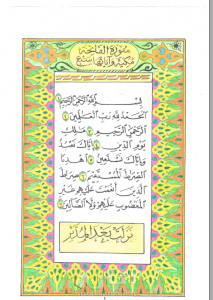 سورة الفاتحة
مكية وآياتها سبع
بسم الله الرحمن الرحيم
الحمد لله رب العالمين
الرحمن الرحيم ملك
يوم الدين إياك نعبد
وإياك نستعين اهدنا
الصراط المستقيم صراط
الذين أنعمت عليهم غير
المغضوب عليهم ولا الضالين
نزلت بعد المدثر